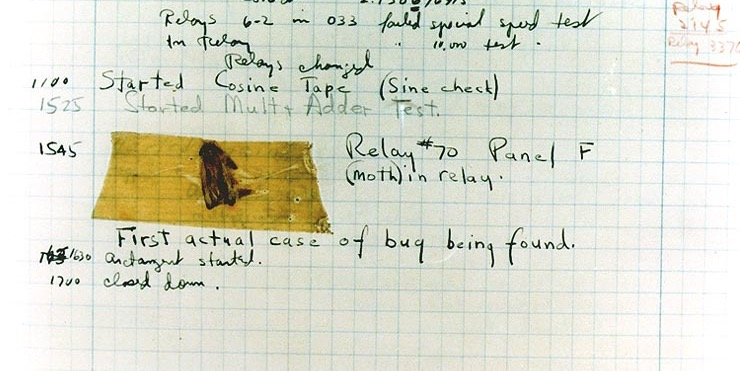 Relays 6-2 in 033 failed special speed test
In Relay " 10,000 test.
Relays changed
1100 Started Cosine Tape (Sine check)
1525 Started Mult + Adder Test.
1545 Relay #70 Panel F
(moth) in relay.
First actual case of bug being found.
1630 arctangent started.
1700 closed down.
Relay
2145
Relay 3370